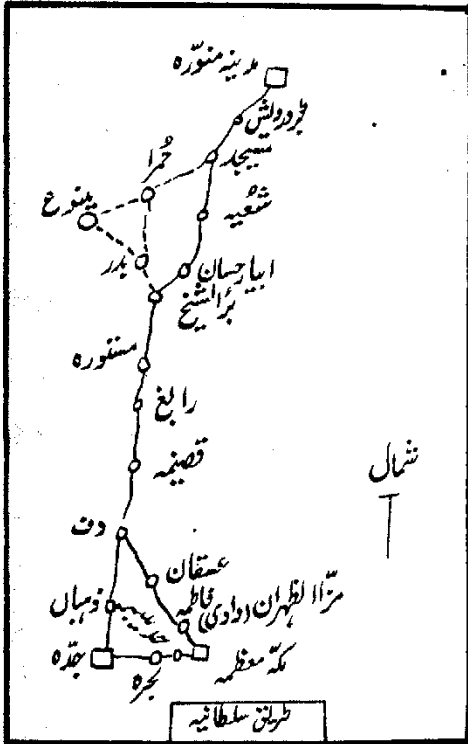 مدینہ منوّرہ
بئردرویش
مسیجد
حُمرا
شعُیہ
ینبوع
بدر
ابیار حسان
بئرالشیخ
مستورہ
رابغ
قضیمہ
شمال
دف
عسفان
مرّالظہران (وادی) فاطمہ
ذہبان
جدّہ
بحرہ
مکّہ معظمہ
طریق سلطانیہ